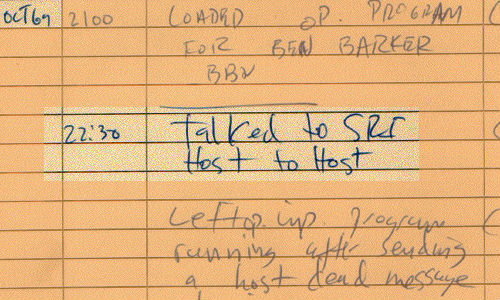 OCT69 2100 LOADED OP. PROGRAM
FOR BEN BARKER
BBN
22:30 Talked to SRI
Host to Host
Left op. imp. program
running after sending
a host dead message